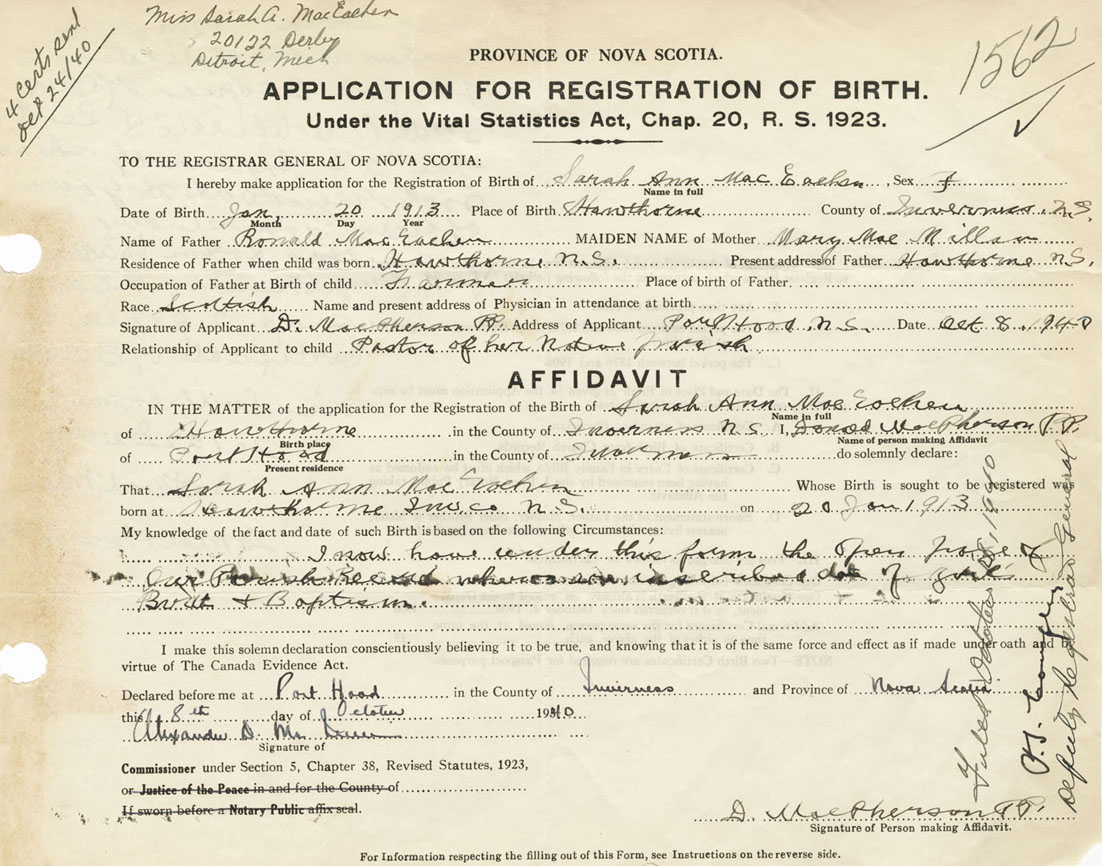 Miss Sarah A. MacEachen
20122 Derby
Detroit, Mech
4 Certs sent
Oct 24/40
1562
PROVINCE OF NOVA SCOTIA.
APPLICATION FOR REGISTRATION OF BIRTH.
Under the Vital Statistics Act, Chap. 20, R. S. 1923.
TO THE REGISTRAR GENERAL OF NOVA SCOTIA:
I hereby make application for the Registration of Birth of Sarah Ann Mac Eachen, Sex f
Name in full
Date of Birth Jan, 20 1913 Place of Birth Hawthorne County of Inverness N.S.
Month Day Year
Name of Father Ronald MacEachen MAIDEN NAME of Mother Mary Mac Millan
Residence of Father when child was born Hawthorne N.S. Present address of Father Hawthorne N.S.
Occupation of Father at Birth of child Farmer Place of birth of Father
Race Scottish Name and present address of Physician in attendance at birth
Signature of Applicant D. MacPherson P.P. Address of Applicant Port Hood, N.S. Date Oct 8, 1940
Relationship of Applicant to child Pastor of her Native Parish
AFFIDAVIT
IN THE MATTER of the application for the Registration of the Birth of Sarah Ann MacEachen
Name in full
of Hawthorne in the County of Inverness N.S. I, Donald MacPherson P.P.
Birth place Name of person making Affidavit
of Port Hood in the County of Inverness do solemnly declare:
Present residence
That Sarah Ann MacEachen Whose Birth is sought to be registered was
born at Hawthorne Inv. Co N.S. on 20 Jan 1913
My knowledge of the fact and date of such Birth is based on the following Circumstances:
I now have under this form the open page of
our Parish Record where are inscribed date of girl's
Birth & Baptism.
I make this solemn declaration conscientiously believing it to be true, and knowing that it is of the same force and effect as if made under oath and by
virtue of The Canada Evidence Act.
Declared before me at Port Hood in the County of Inverness and Province of Nova Scotia
this 8th day of October 1940
Alexander D. Mc
Signature of
Commissioner under Section 5, Chapter 38, Revised Statutes, 1923,
or Justice of the Peace in and for the County of
If sworn before a Notary Public affix seal.
D. MacPherson P.P.
Signature of Person making Affidavit.
Filed October 1940
Deputy Registrar General
For Information respecting the filling out of this Form, see Instructions on the reverse side.